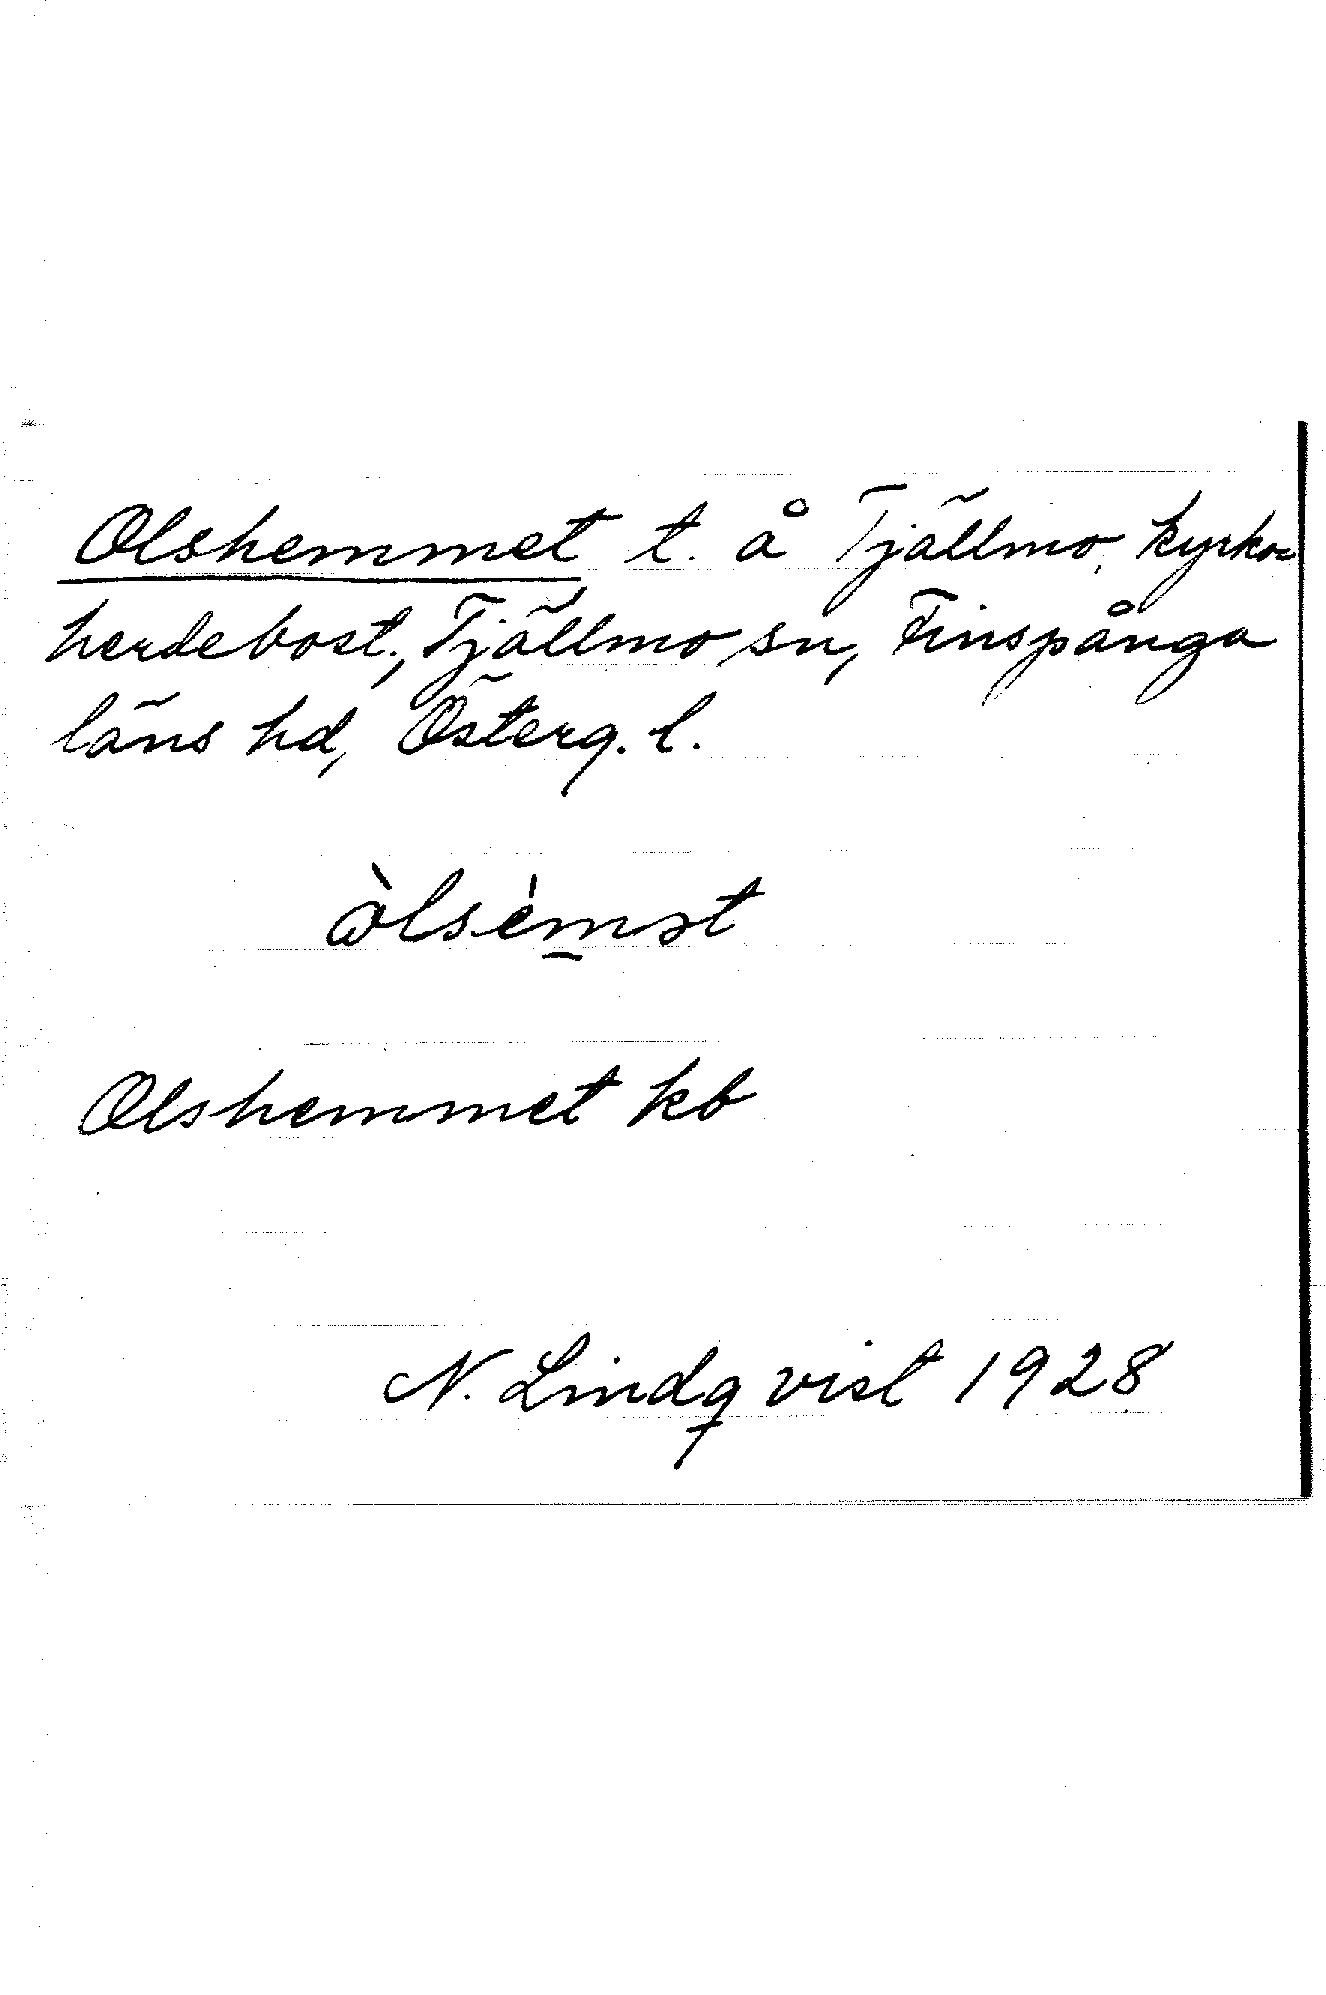 Olshemmet t. å Tjällmo, kyrko-
herdebost., Tjällmo sn, Finspånga
läns hd, Österg. l.
ὼlsėm̱ət
Olshemmet kb
N. Lindqvist 1928